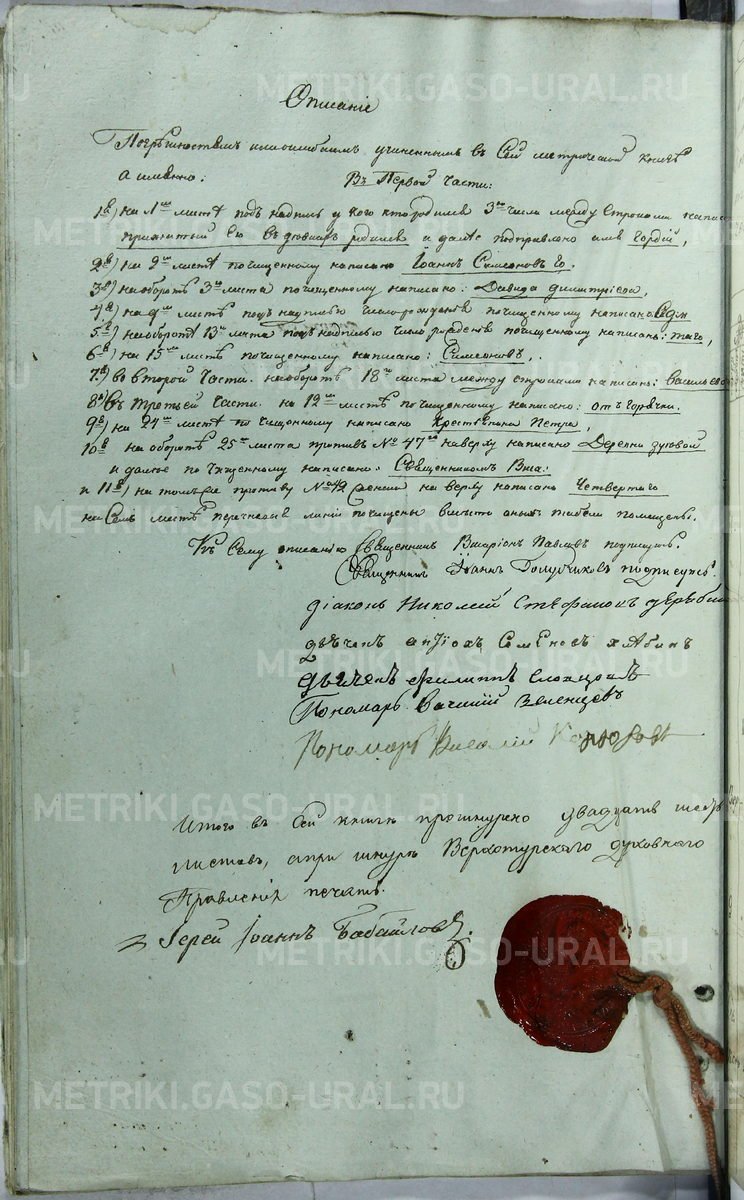 Описаніе
Погрѣшностямъ или ошибкамъ учиненнымъ въ Сей метрической книгѣ
а именно: Въ Первой Части:
1е) на 1мъ листѣ подъ надпись у кого кто родился 3го числа между строками написано
прижитый ею въ родился и далѣе подправлено имя Гордій,
2е) на 2мъ листѣ почищенному написано Іоаннъ Симеоновъ
3е) на оборотѣ 3го листа почищенному написано: Давида Димитріева,
4е) на листѣ подъ надписью число рожденія почищенному написано Седм
5е) на оборотѣ 13го листа подъ надписью число рожденія почищенному написано: того,
6е) на 15мъ листѣ почищенному написано: Симеоновъ,
7е) во второй Части. на оборотѣ 18го листа между строками написано: Васильева
8е) Въ третьей Части. на 12мъ листѣ почищенному написано: отъ Горячки.
9е) на 24мъ листѣ почищенному написано Крестьянина Петра,
10е на оборотѣ 25го листа противъ № 47го на верху написано Деревни Зуевой
и далѣе почищенному написано: Священникомъ
и 11е) на томъ же противу № 42 на верху написано Четвертаго
на Семъ листѣ линіи почищены вмѣсто оныхъ помещены.
Къ Сему описанію Священникъ Иларіонъ Павловъ подписуюсь.
Священникъ Іоаннъ Голубчиковъ подписуюсь.
Діаконъ Николай Стефановъ
Дьячекъ Семеновъ Хлябинъ
Дьячекъ Филиппъ Словцовъ
Пономарь Василій Зеленцевъ
Пономарь Василій
Итого въ Сей книгѣ прошнурено двадцать шесть
листовъ, а при шнурѣ Верхотурскаго духовнаго
Правленія печать.
Іерей Іоаннъ Бабайловъ
METRIKI.GASO-URAL.RU